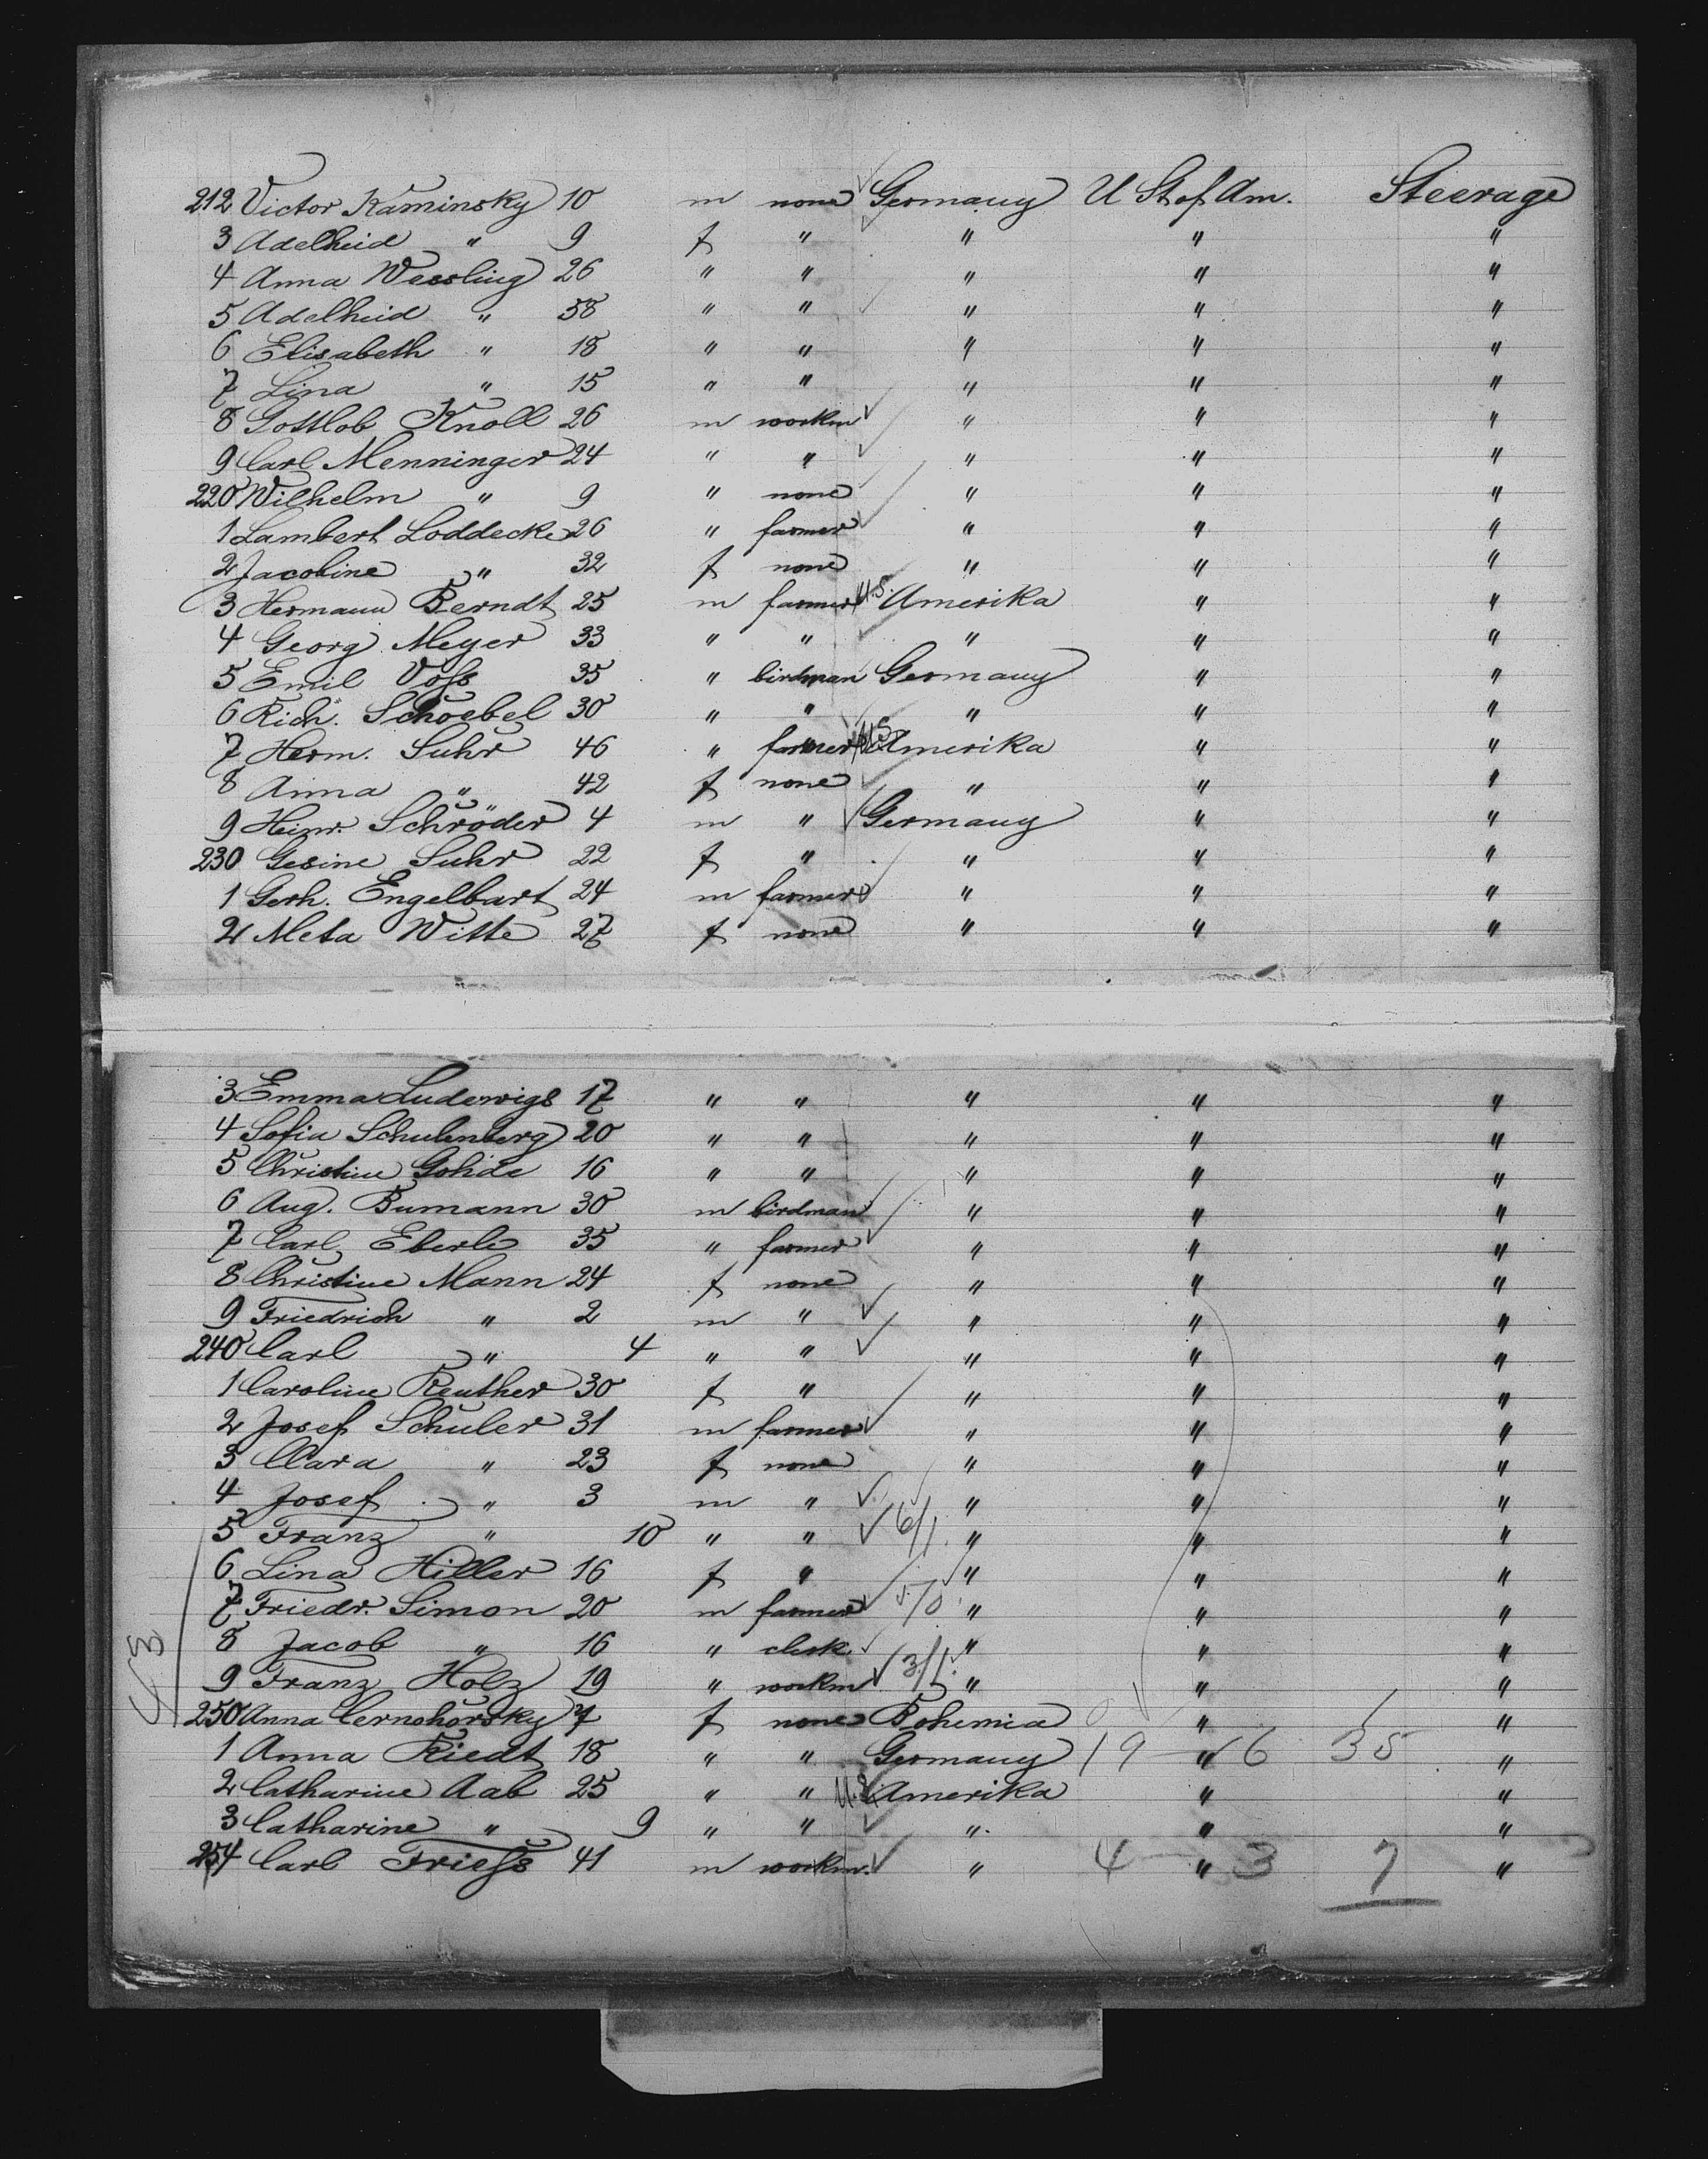 212 Victor Kaminsky 10 m none Germany U St of Am. Steerage
3 Adelheid " 9 f " " " "
4 Anna Wessling 26 " " " " "
5 Adelheid " 58 " " " " "
6 Elisabeth " 18 " " " " "
7 Lina " 15 " " " " "
8 Gottlob Knoll 26 m workm " " "
9 Carl Menninger 24 " " " " "
220 Wilhelm " 9 " none " " "
1 Lambert Loddecke 26 " farmer " " "
2 Jacobine " 32 f none " " "
3 Hermann Berndt 25 m farmer U.S. Amerika " "
4 Georg Meyer 33 " " " " "
5 Emil Voß 35 " birdman Germany " "
6 Rich. Schoebel 30 " " " " "
7 Herm. Suhr 46 " farmer U.S. Amerika " "
8 Anna " 42 f none " " "
9 Heinr. Schröder 4 m " Germany " "
230 Gesine Suhr 22 f " " " "
1 Gerh. Engelbart 24 m farmer " " "
2 Meta Witte 27 f none " " "
3 Emma Ludewigs 17 " " " " "
4 Sofia Schulenberg 20 " " " " "
5 Christine Gohde 16 " " " " "
6 Aug. Bumann 30 m birdman " " "
7 Carl Eberle 35 " farmer " " "
8 Christine Mann 24 f none " " "
9 Friedrich " 2 m " " " "
240 Carl " 4 " " " " "
1 Caroline Reuther 30 f " " " "
2 Josef Schuler 31 m farmer " " "
3 Clara " 23 f none " " "
4 Josef " 3 m " " " "
5 Franz " 10 " " 6/1. " " "
6 Lina Hiller 16 f " " " "
7 Friedr. Simon 20 m farmer " " "
8 Jacob " 16 " clerk " " "
9 Franz Holz 19 " workm 3/1. " " "
250 Anna Cernohorsky 7 f none Bohemia " "
1 Anna Riedt 18 " " Germany 19 " 16 35 "
2 Catharine Aab 25 " " U.S. Amerika " "
3 Catharine " 9 " " " " "
254 Carl Frieß 41 m workm. " 4 " 3 7 "